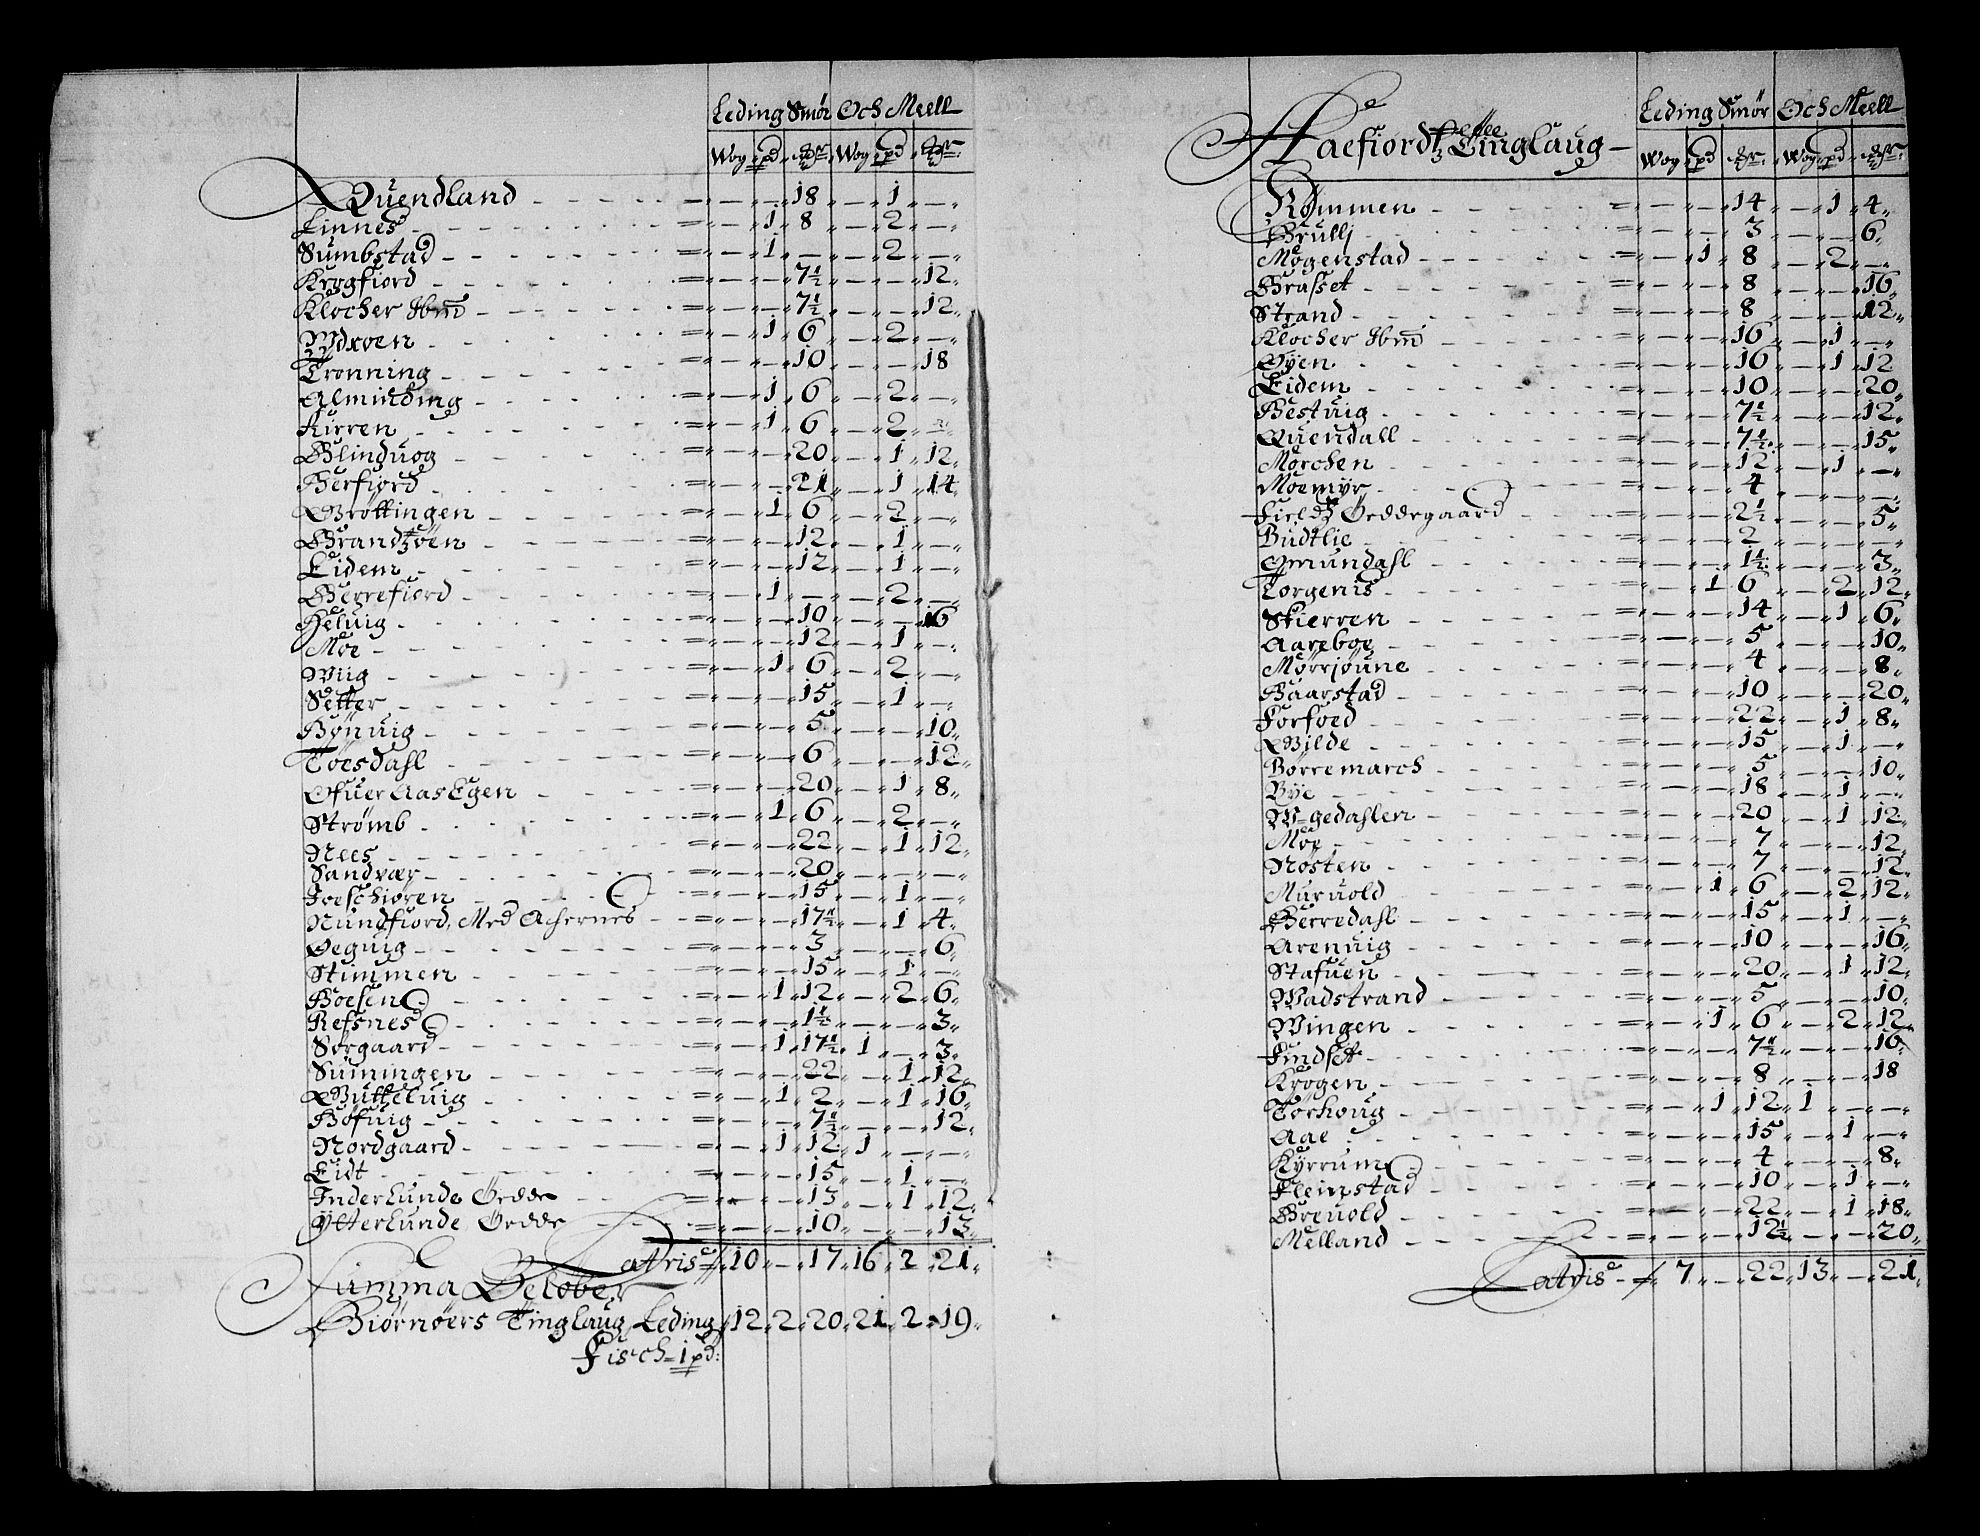 Leding Smør Och Meell
Wog pd mr Wog pd mr
Quendland = — — 18 — 1 —
Linnes = — 1 8 — 2 —
Sumbstad = — 1 — — 2 —
Krogfiord = — — 7½ — — 12
Klocher Ibm = — — 7½ — — 12
Ydxøen = — 1 6 — 2 —
Trønning = — — 10 — — 18
Alminding = — 1 6 — 2 —
Kirren = — 1 6 — 2
Blinduog = — — 20 — 1 12
Berfiord = — — 21 — 1 14
Brøttingen = — 1 6 — 2 —
Brandtzøen = — — 12 — 1 —
Eidem = — — 12 — 1 —
Berrefiord = — 1 — — 2 —
Heluig = — — 10 — — 16
Moe = — — 12 — 1 —
Wiig = — 1 6 — 2 —
Setter = — — 15 — 1 —
Bønuig = — — 5 — — 10
Toesdahl = — — 6 — — 12
Ofuer Aas Egen = — — 20 — 1 8
Strømb = — 1 6 — 2 —
Nees = — — 22 — 1 12
Sandvær = — — 20 — — —
Joeschiøren = — — 15 — 1 —
Nundfiord, Med Achernes = — — 17½ — 1 4
Oeguig = — — 3 — — 6
Stimmen = — — 15 — 1 —
Boesen = — 1 12 — 2 6
Refsnes = — — 1½ — — 3
Sørgaard = — 1 17½ 1 — 3
Sumingen = — — 22 — 1 12
Butteluig = — 1 2 — 1 16
Bøfuig = — — 7½ — — 12
Nordgaard = — 1 12 1 — —
Eidt = — — 15 — 1 —
Inderlunde Ørdde = — — 13 — 1 12
Ytterlunde Ørdde = — — 10 — — 13
Latris 10 — 17 16 2 21
Summa Beløber
Biørnøers Tinglaug Leding 12 2 20 21 2 19
Fisch = 1 pd:
Leding Smør Och Meell
Aaefiordtz Tinglaug — Wog pd mr Wog pd mr
Rømmen = — — 14 — 1 4
Brullj = — — 3 — — 6
Mogenstad = — 1 8 — 2 —
Grasset = — — 8 — — 16
Strand = — — 8 — — 12
Klocher Ibm = — — 16 — 1 —
Øyen = — — 16 — 1 12
Eidem = — — 10 — — 20
Bestuig = — — 7½ — — 12
Quendall = — — 7½ — — 15
Mørchen = — — 12 — 1 —
Moemyr = — — 4 — — —
Fieldtz Øeddegaard = — — 2½ — — 5
Budtlie = — — 2 — — —
Omundahl = — — 1½ — — 3
Torgenis = — 1 6 — 2 12
Skierren = — — 14 — 1 6
Aareboe = — — 5 — — 10
Mørrjoune = — — 4 — — 8
Baarstad = — — 10 — — 20
Forfoed = — — 22 — 1 8
Bilde = — — 15 — 1 —
Børremarch = — — 5 — — 10
Bye = — — 18 — 1 —
W=gedahlen = — — 20 — 1 12
Moe = — — 7 — — 12
Nosten = — — 7 — — 12
Muruold = — 1 6 — 2 12
Berredahl = — — 15 — 1 —
Arenuig = — — 10 — — 16
Stafuen = — — 20 — 1 12
Wadstrand = — — 5 — — 10
Wingen = — 1 6 — 2 12
Findset = — — 7½ — — 10
Krogen = — — 8 — — 18
Torhoug = — 1 12 1 — —
Aae = — — 15 — 1 —
Kyrrum = — — 4 — — 8
Fleinstad = — — 10 — 1 —
Breuold = — — 22 — 1 18
Melland = — — 12½ — — 20
Latris 7 — 22 13 — 21